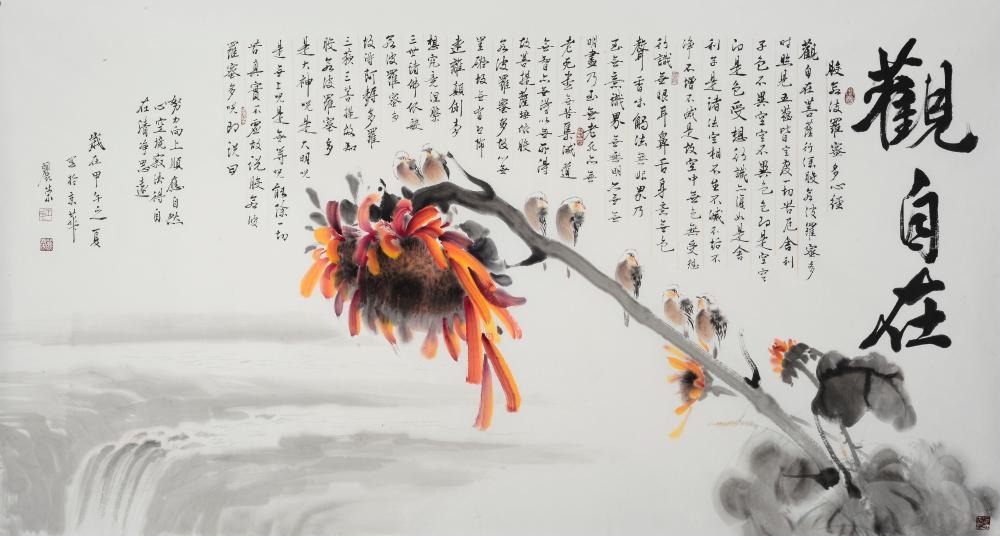 觀自在
般若波羅蜜多心經
觀自在菩薩行深般若波羅蜜多
時照見五蘊皆空度一切苦厄舍利
子色不異空空不異色色即是空空
即是色受想行識亦復如是舍
利子是諸法空相不生不滅不垢不
淨不增不減是故空中無色無受想
行識無眼耳鼻舌身意無色
聲香味觸法無眼界乃
至無意識界無無明亦無無
明盡乃至無老死亦無
老死盡無苦集滅道
無智亦無得以無所得
故菩提薩埵依般
若波羅蜜多故心無
罣礙故無有恐怖
遠離顛倒夢
想究竟涅槃
三世諸佛依般
若波羅蜜多
故得阿耨多羅
三藐三菩提故知
般若波羅蜜多
是大神咒是大明咒
是無上咒是無等等咒能除一切
苦真實不虛故說般若波
羅蜜多咒即說咒曰
努力向上順應自然
心空境寂法得自
在清淨思遠
歲在甲午之夏
寫於京華